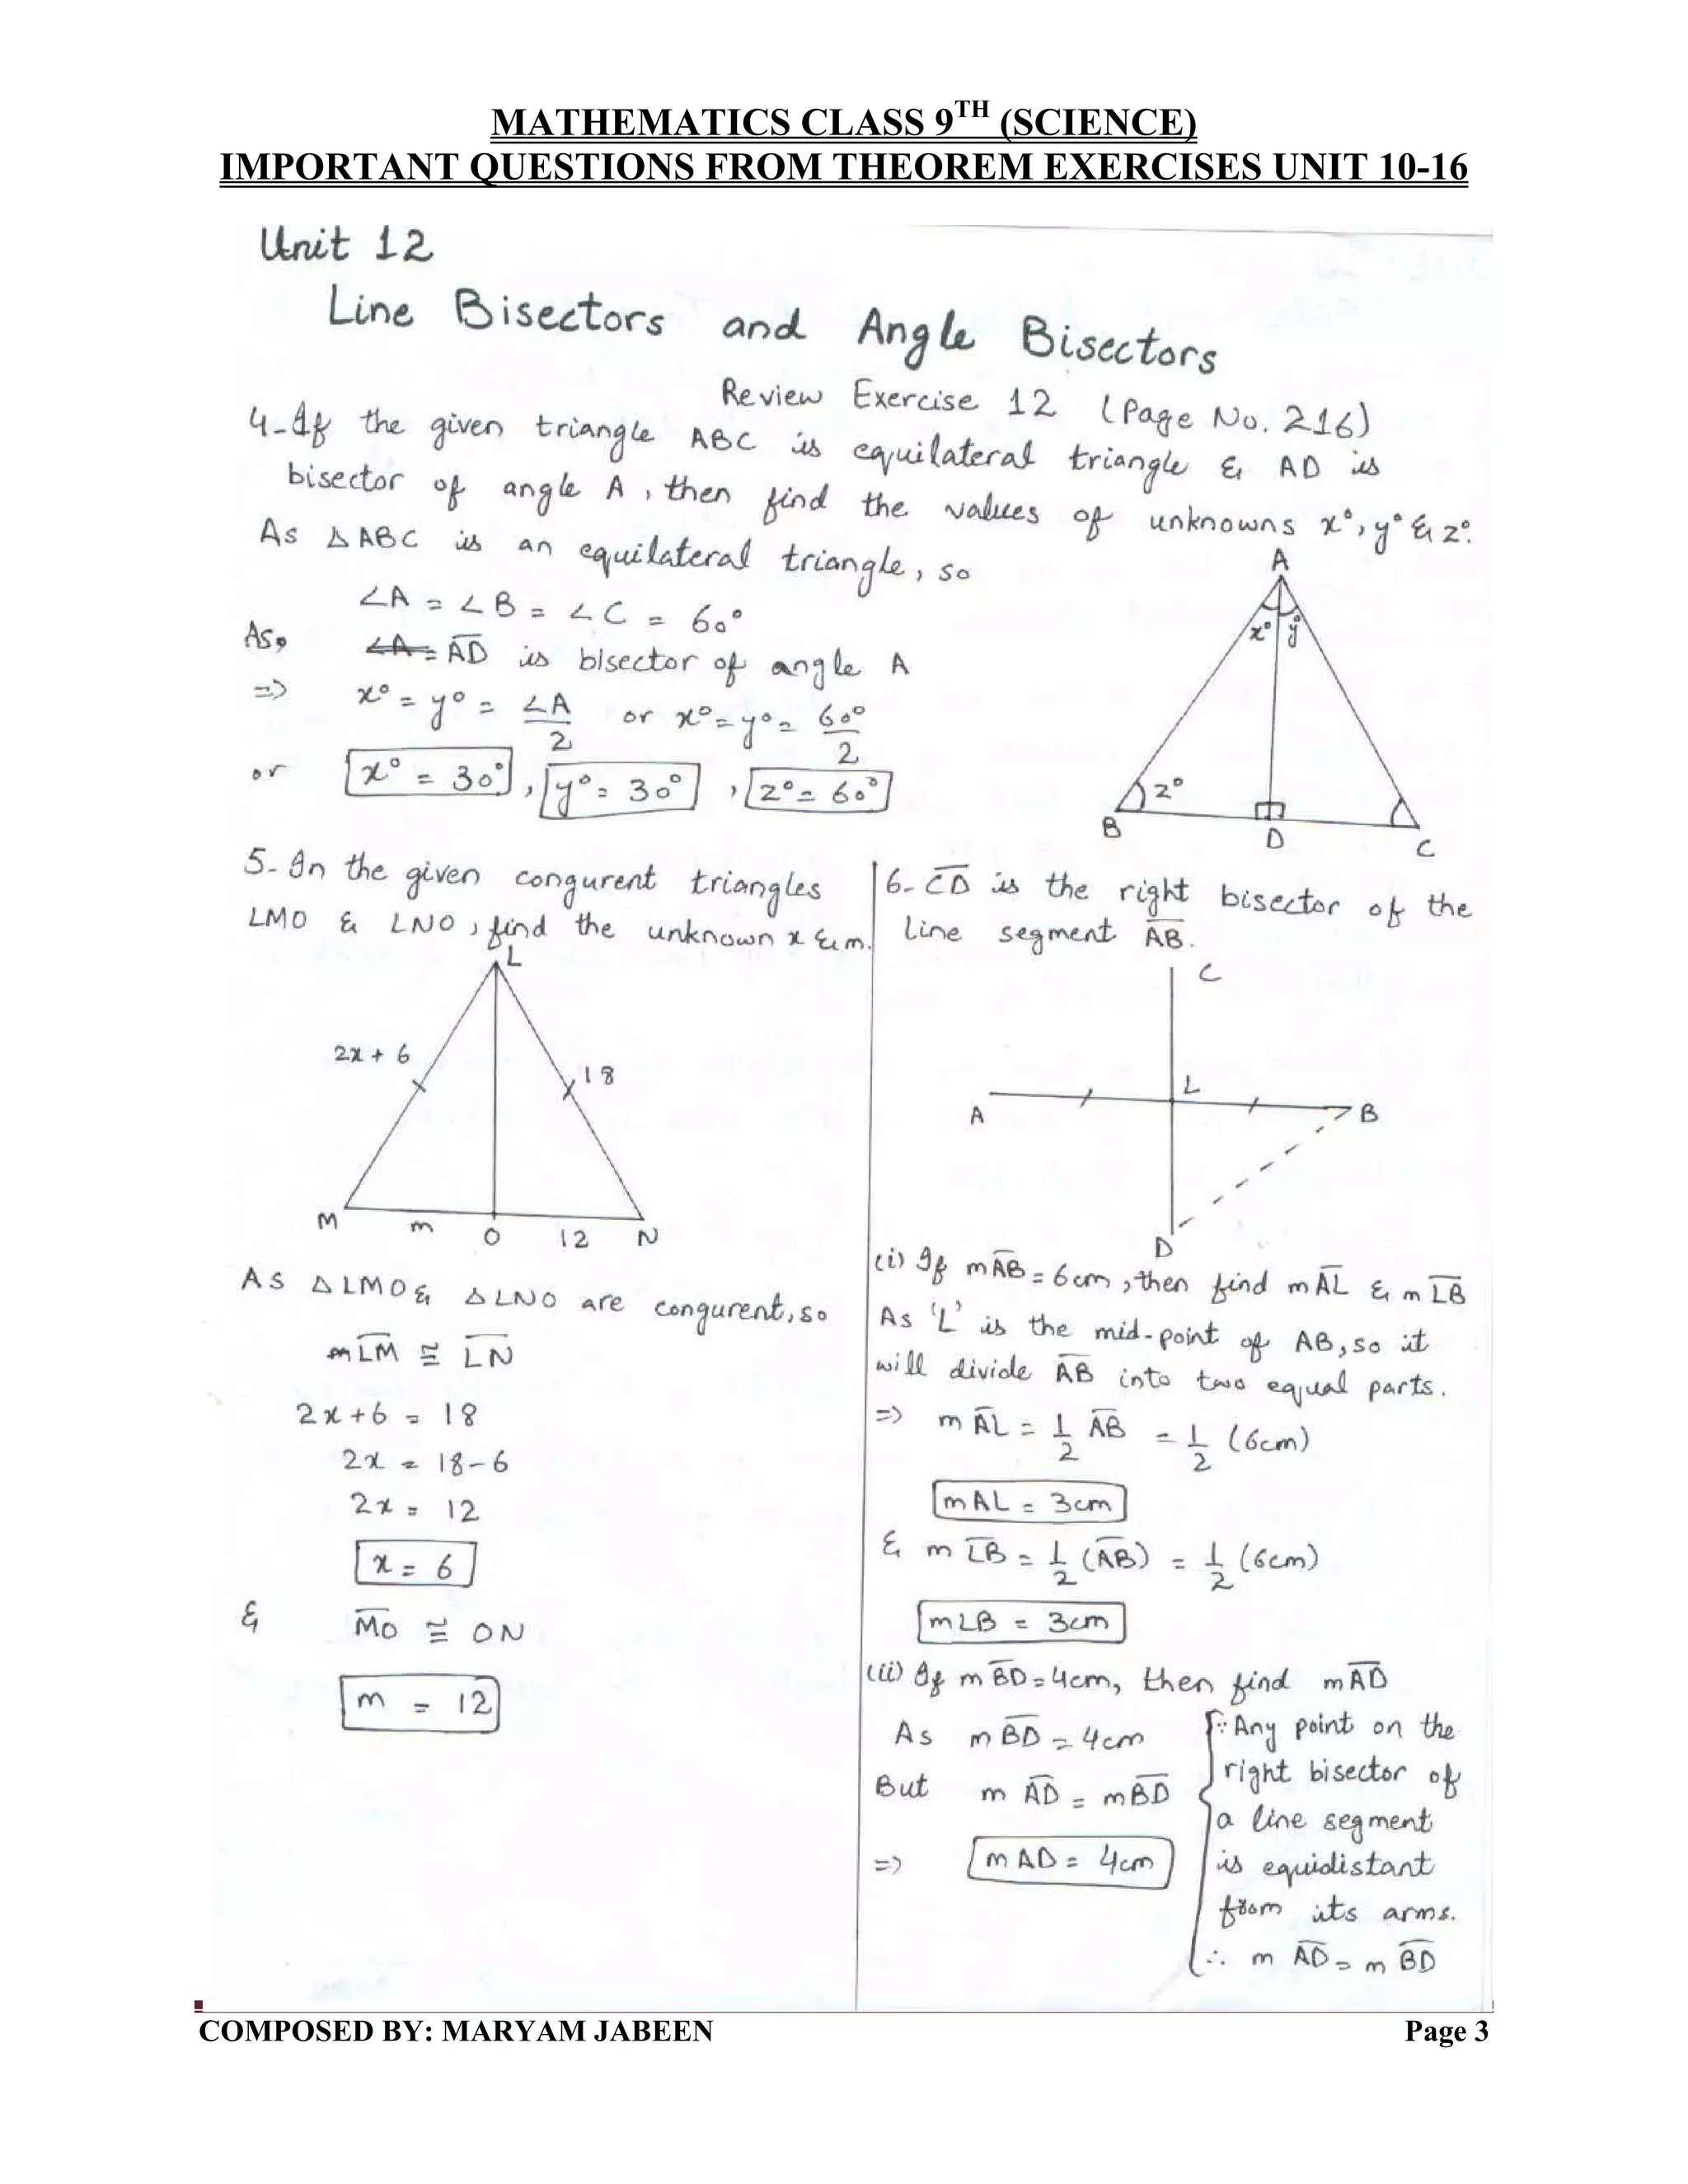 MATHEMATICS CLASS 9TH (SCIENCE)
IMPORTANT QUESTIONS FROM THEOREM EXERCISES UNIT 10-16
Unit 12
Line Bisectors and Angle Bisectors
Review Exercise 12 (Page No. 216)
4- If the given triangle ABC is equilateral triangle & AD is
bisector of angle A, then find the values of unknowns x°, y° & z°.
As △ABC is an equilateral triangle, so
∠A = ∠B = ∠C = 60°
As, ∠A = AD is bisector of angle A
=> x° = y° = ∠A/2 or x° = y° = 60°/2
or x° = 30°, y° = 30°, z° = 60°
A
x° y°
z°
B D C
5- In the given congurent triangles
LMO & LNO, find the unknown x & m.
L
2x + 6
18
M m O 12 N
As △LMO & △LNO are congurent, so
mLM ≅ LN
2x + 6 = 18
2x = 18-6
2x = 12
x = 6
& MO ≅ ON
m = 12
6- CD is the right bisector of the
line segment AB.
C
L
A B
D
(i) If mAB = 6cm, then find mAL & mLB
As 'L' is the mid-point of AB, so it
will divide AB into two equal parts.
=> mAL = 1/2 AB = 1/2 (6cm)
mAL = 3cm
& mLB = 1/2 (AB) = 1/2 (6cm)
mLB = 3cm
(ii) If mBD = 4cm, then find mAD
As mBD = 4cm
But mAD = mBD
=> mAD = 4cm
∵ Any point on the
right bisector of
a line segment
is equidistant
from its arms.
∴ mAD = mBD
COMPOSED BY: MARYAM JABEEN Page 3